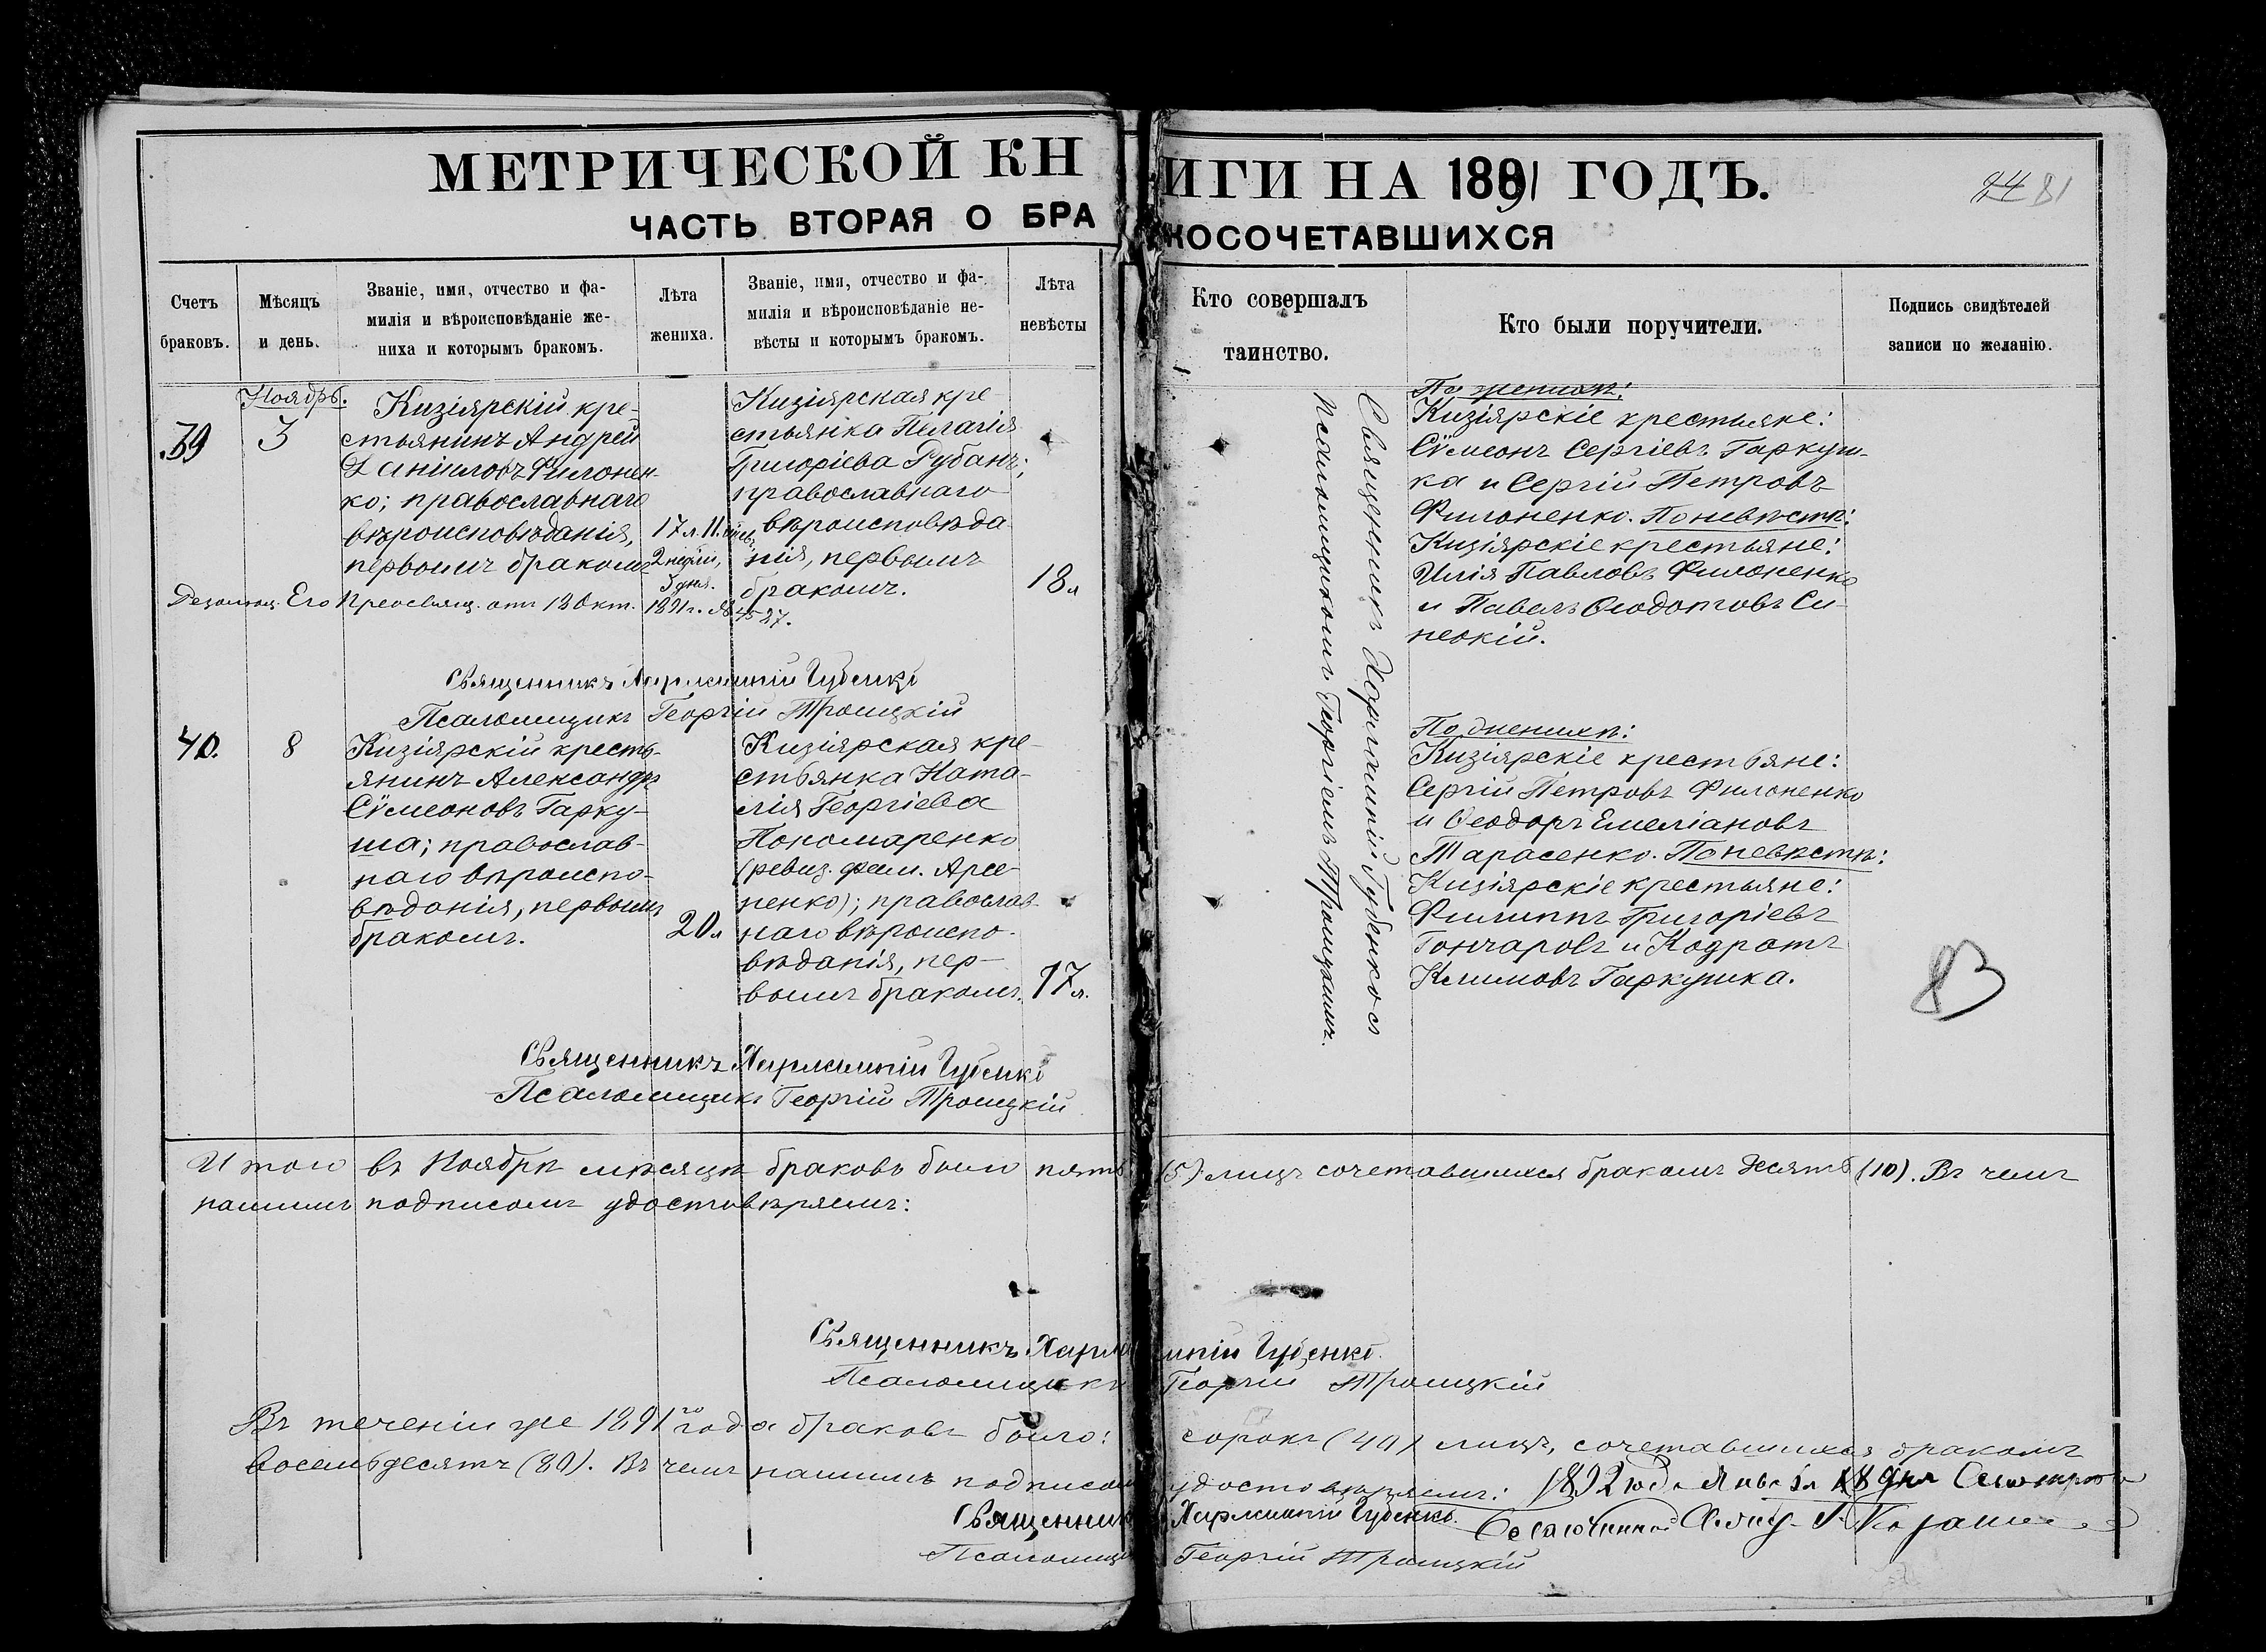 МЕТРИЧЕСКОЙ КНИГИ НА 1891 ГОДЪ.
ЧАСТЬ ВТОРАЯ О БРАКОСОЧЕТАВШИХСЯ
24 81
Счетъ
браковъ.
Мѣсяцъ
и день.
Званіе, имя, отчество и фа-
милія и вѣроисповѣданіе же-
ниха и которымъ бракомъ.
Лѣта
жениха.
Званіе, имя, отчество и фа-
милія и вѣроисповѣданіе не-
вѣсты и которымъ бракомъ.
Лѣта
невѣсты
Кто совершалъ
таинство.
Кто были поручители.
Подпись свидѣтелей
записи по желанію.
39
Ноябрь.
3
Кизіярскій кре-
стьянинъ Андрей
Даніиловъ Филонен-
ко; православнаго
вѣроисповѣданія,
первымъ бракомъ
17 л. 11
2 недѣли,
5 дня.
Кизіярская кре-
стьянка Пелагія
Григоріева Рубанъ;
православнаго
вѣроисповѣда
нія, первымъ
бракомъ.
18 л
Его Преосвящ. отъ 18 Окт. 1891 г. №
Священникъ Харлампій Губенко
Псаломщикъ Георгій Троицкій
Священникъ Харлампій Губенко съ
псаломщикомъ Георгіемъ Троицкимъ.
По женихѣ:
Кизіярскіе крестьяне:
Сѵмеонъ Сергіевъ Гаркуш-
ка и Сергій Петровъ
Филоненко. По невѣстѣ:
Кизіярскіе крестьяне:
Илія Павловъ Филоненко
и Павелъ Ѳеодотовъ Си-
40.
8
Кизіярскій кресть-
янинъ Александръ
Сѵмеоновъ Гарку-
ша; православ-
наго вѣроиспо-
вѣданія, первымъ
бракомъ.
20 л
Кизіярская кре-
стьянка Ната-
лія Георгіева
Пономаренко
(ревиз. фам. Арсе-
ненко); православ-
наго вѣроиспо-
вѣданія, пер-
вымъ бракомъ.
17 л.
По женихѣ:
Кизіярскіе крестьяне:
Сергій Петровъ Филоненко
и Ѳеодоръ Емеліановъ
Тарасенко. По невѣстѣ:
Кизіярскіе крестьяне:
Филиппъ Григоріевъ
Гончаровъ и Кодратъ
Климовъ Гаркушка.
83
Священникъ Харлампій Губенко
Псаломщикъ Георгій Троицкій
Итого въ Ноябрѣ мѣсяцѣ браковъ было пять (5) лицъ сочетавшихся бракомъ десять (10). Въ чемъ
нашимъ подписомъ удостовѣряемъ:
Священникъ Харлампій Губенко.
Псаломщикъ Георгій Троицкій
Въ теченіи же 1891го года браковъ было: сорокъ (40) лицъ, сочетавшихся бракомъ
восемьдесятъ (80). Въ чемъ нашимъ подписомъ удостовѣряемъ: 1892 года Января 18 дня
Священникъ Харлампій Губенко.
Псаломщикъ Георгій Троицкій